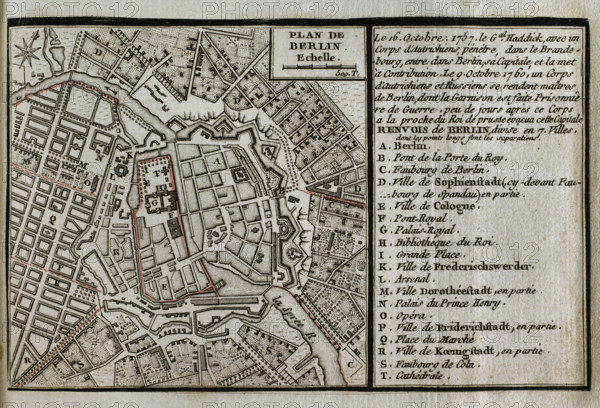 PLAN DE
BERLIN.
Echelle.
500. T.
la Sprée R.
Le 16. Octobre. 1757. le G.al Haddick, avec un
Corps d'Autrichiens, pénétre, dans le Brande-
bourg, entre dans Berlin, sa Capitale, et la met
à Contribution. Le 9. Octobre 1760, un Corps
d'Autrichiens et Russiens se rendent maîtres
de Berlin, dont la Garnison est faite Prisonnié-
re de Guerre. peu de jours après ce Corps
a la proche du Roi de prusse évacua cette Capitale
RENVOIS de BERLIN, divisé en 7. Villes.
dont les points longs font les separations.
A. Berlin.
B. Pont de la Porte du Roy.
C. Faubourg de Berlin.
D. Ville de Sophienstadt (cy-devant Fau-
bourg de Spandau) en partie.
E. Ville de Cologne.
F. Pont-Royal.
G. Palais-Royal.
H. Bibliothéque du Roi.
I. Grande Place.
K. Ville de Frederischswerder.
L. Arsenal.
M. Ville Dorothéestadt, en partie.
N. Palais du Prince Henry.
O. Opéra.
P. Ville de Friderichstadt, en partie.
Q. Place du Marché
R. Ville de Kœnigstadt, en partie.
S. Fauxbourg de Coln.
T. Cathédrale.